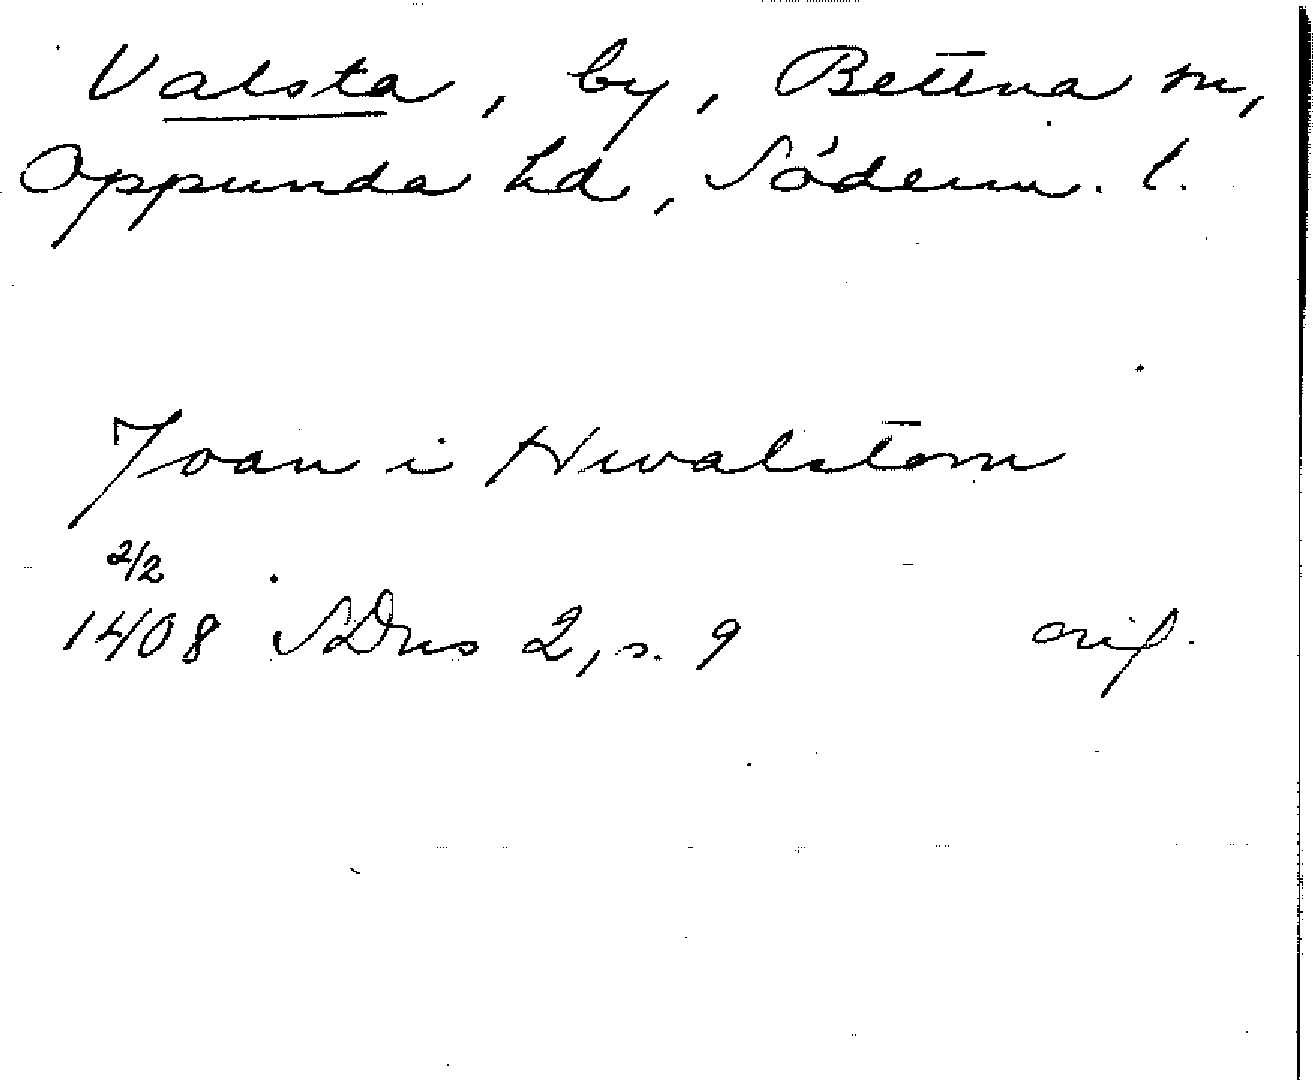 Valsta, by, Bettna sn,
Oppunda hd, Söderm. l.
Joan i Hwalstom
2/2
1408 SDns 2, s. 9 orig.